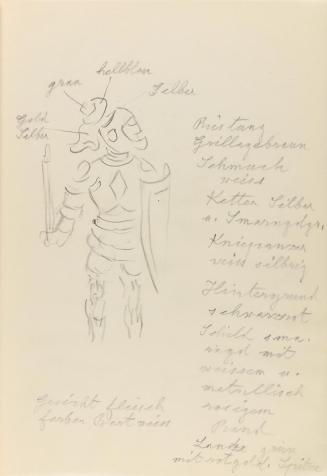 grau
hellblau
Silber
Gold
Silber
Rüstung
Grillagebraun
Schmuck
weiss
Ketten Silber
u. Smaragdgr.
Kniepanzer
weiss silbrig
Hintergrund
schwarzrot
Schild sma-
ragd mit
weissem u.
metallisch
rosigem
Rand
Lanze grün
mit rotgold. Spitze
Gesicht fleisch
farben Bart weiss